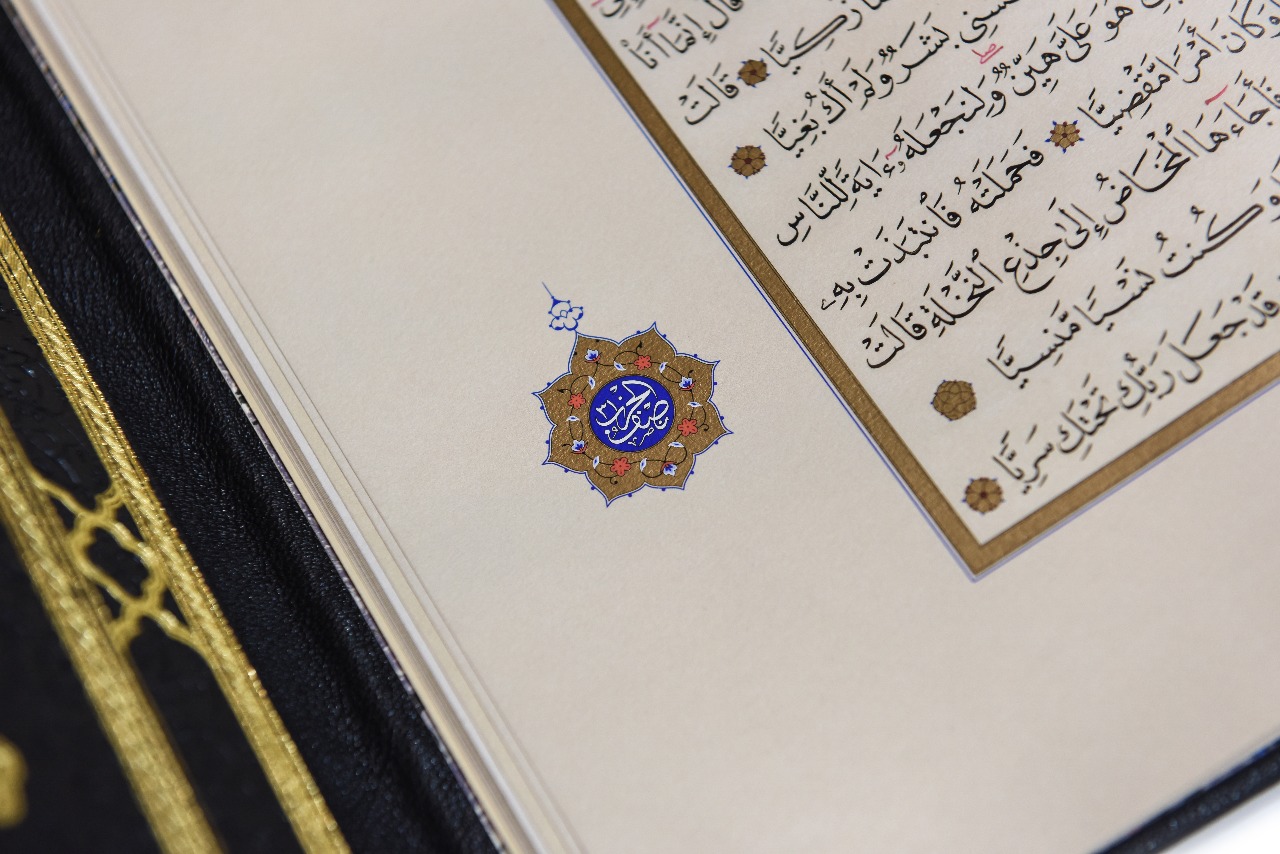 قَالَ إِنَّمَآ أَنَا۠
زَكِيًّا قَالَتْ
بَشَرٌ وَلَمْ أَكُ بَغِيًّا
هُوَ عَلَىَّ هَيِّنٌ ۖ وَلِنَجْعَلَهُۥٓ ءَايَةً لِّلنَّاسِ
وَكَانَ أَمْرًا مَّقْضِيًّا فَحَمَلَتْهُ فَٱنتَبَذَتْ بِهِۦ
فَأَجَآءَهَا ٱلْمَخَاضُ إِلَىٰ جِذْعِ ٱلنَّخْلَةِ قَالَتْ
وَكُنتُ نَسْيًا مَّنسِيًّا
قَدْ جَعَلَ رَبُّكِ تَحْتَكِ سَرِيًّا
نصف الحزب ٣١